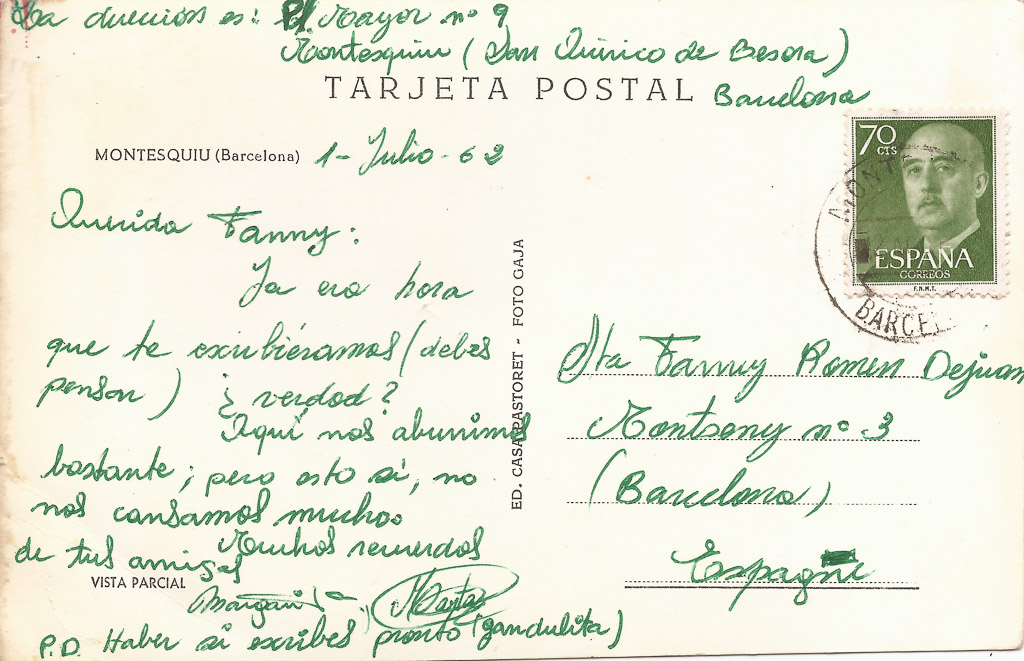 La dirección es: C/ Mayor nº 9
Montesquiu (San Quirico de Besora)
Barcelona
TARJETA POSTAL
MONTESQUIU (Barcelona) 1-Julio-62
Querida Fanny:
Ya era hora
que te escribiéramos (debes
pensar) ¿verdad?
Aquí nos aburrimos
bastante; pero esto si, no
nos cansamos mucho.
Muchos recuerdos
de tus amigas
VISTA PARCIAL
Margarita
P.D. Haber si escribes pronto (gandulita)
ED. CASA PASTORET - FOTO GAJA
70
CTS
ESPAÑA
CORREOS
F.N.M.T.
MONT
BARCEL
Sta Fanny Romen Dejuan
Montseny nº 3
(Barcelona)